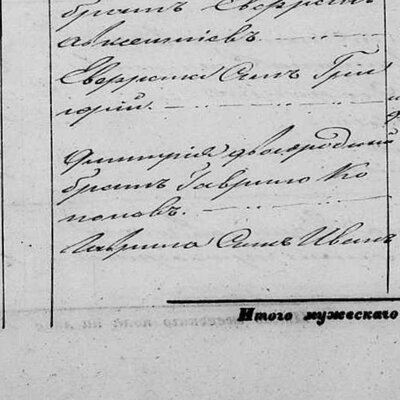 братъ Евврастъ
Авксентіевъ.
Еввраста Сынъ Гри
горій.
Дмитрія двоюродный
братъ Гаврило Ко
ноновъ.
Гаврила Сынъ Иванъ
Итого мужескаго